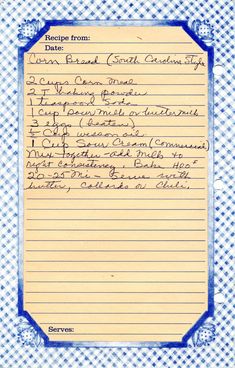 Recipe from:
Date:
Corn Bread (South Carolina Style
2 Cups Corn Meal
2 T baking powder
1 teaspoon Soda
1 Cup Sour Milk or buttermilk
3 eggs (beaten)
Cup wesson oil
1 Cup Sour Cream (commercial)
Mix together - add Milk to
right consistency, Bake 400°
20-25 Mi - Serve with
butter, Collards or Chili.
Serves: